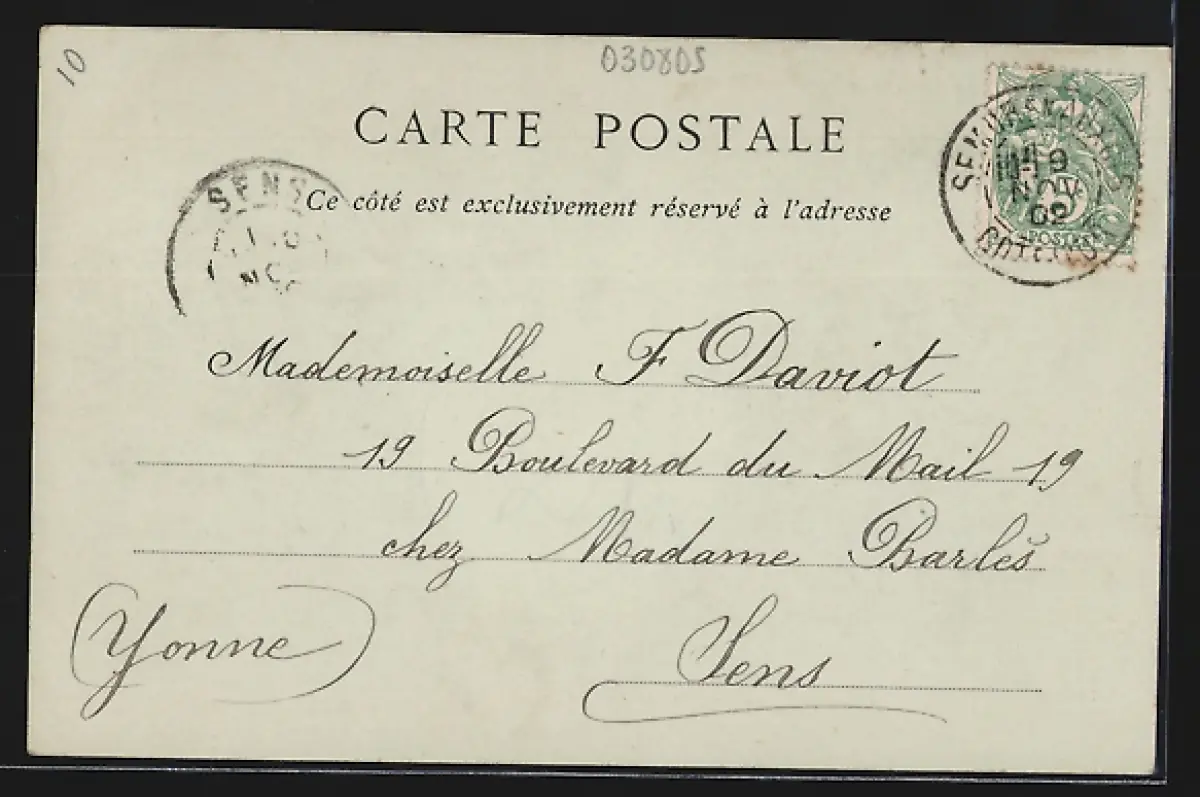 10
030805
CARTE POSTALE
Ce côté est exclusivement réservé à l'adresse
SENS
NOV
02
POSTES
Mademoiselle F Daviot
19 Boulevard du Mail 19
chez Madame Barlès
(Yonne)
Sens